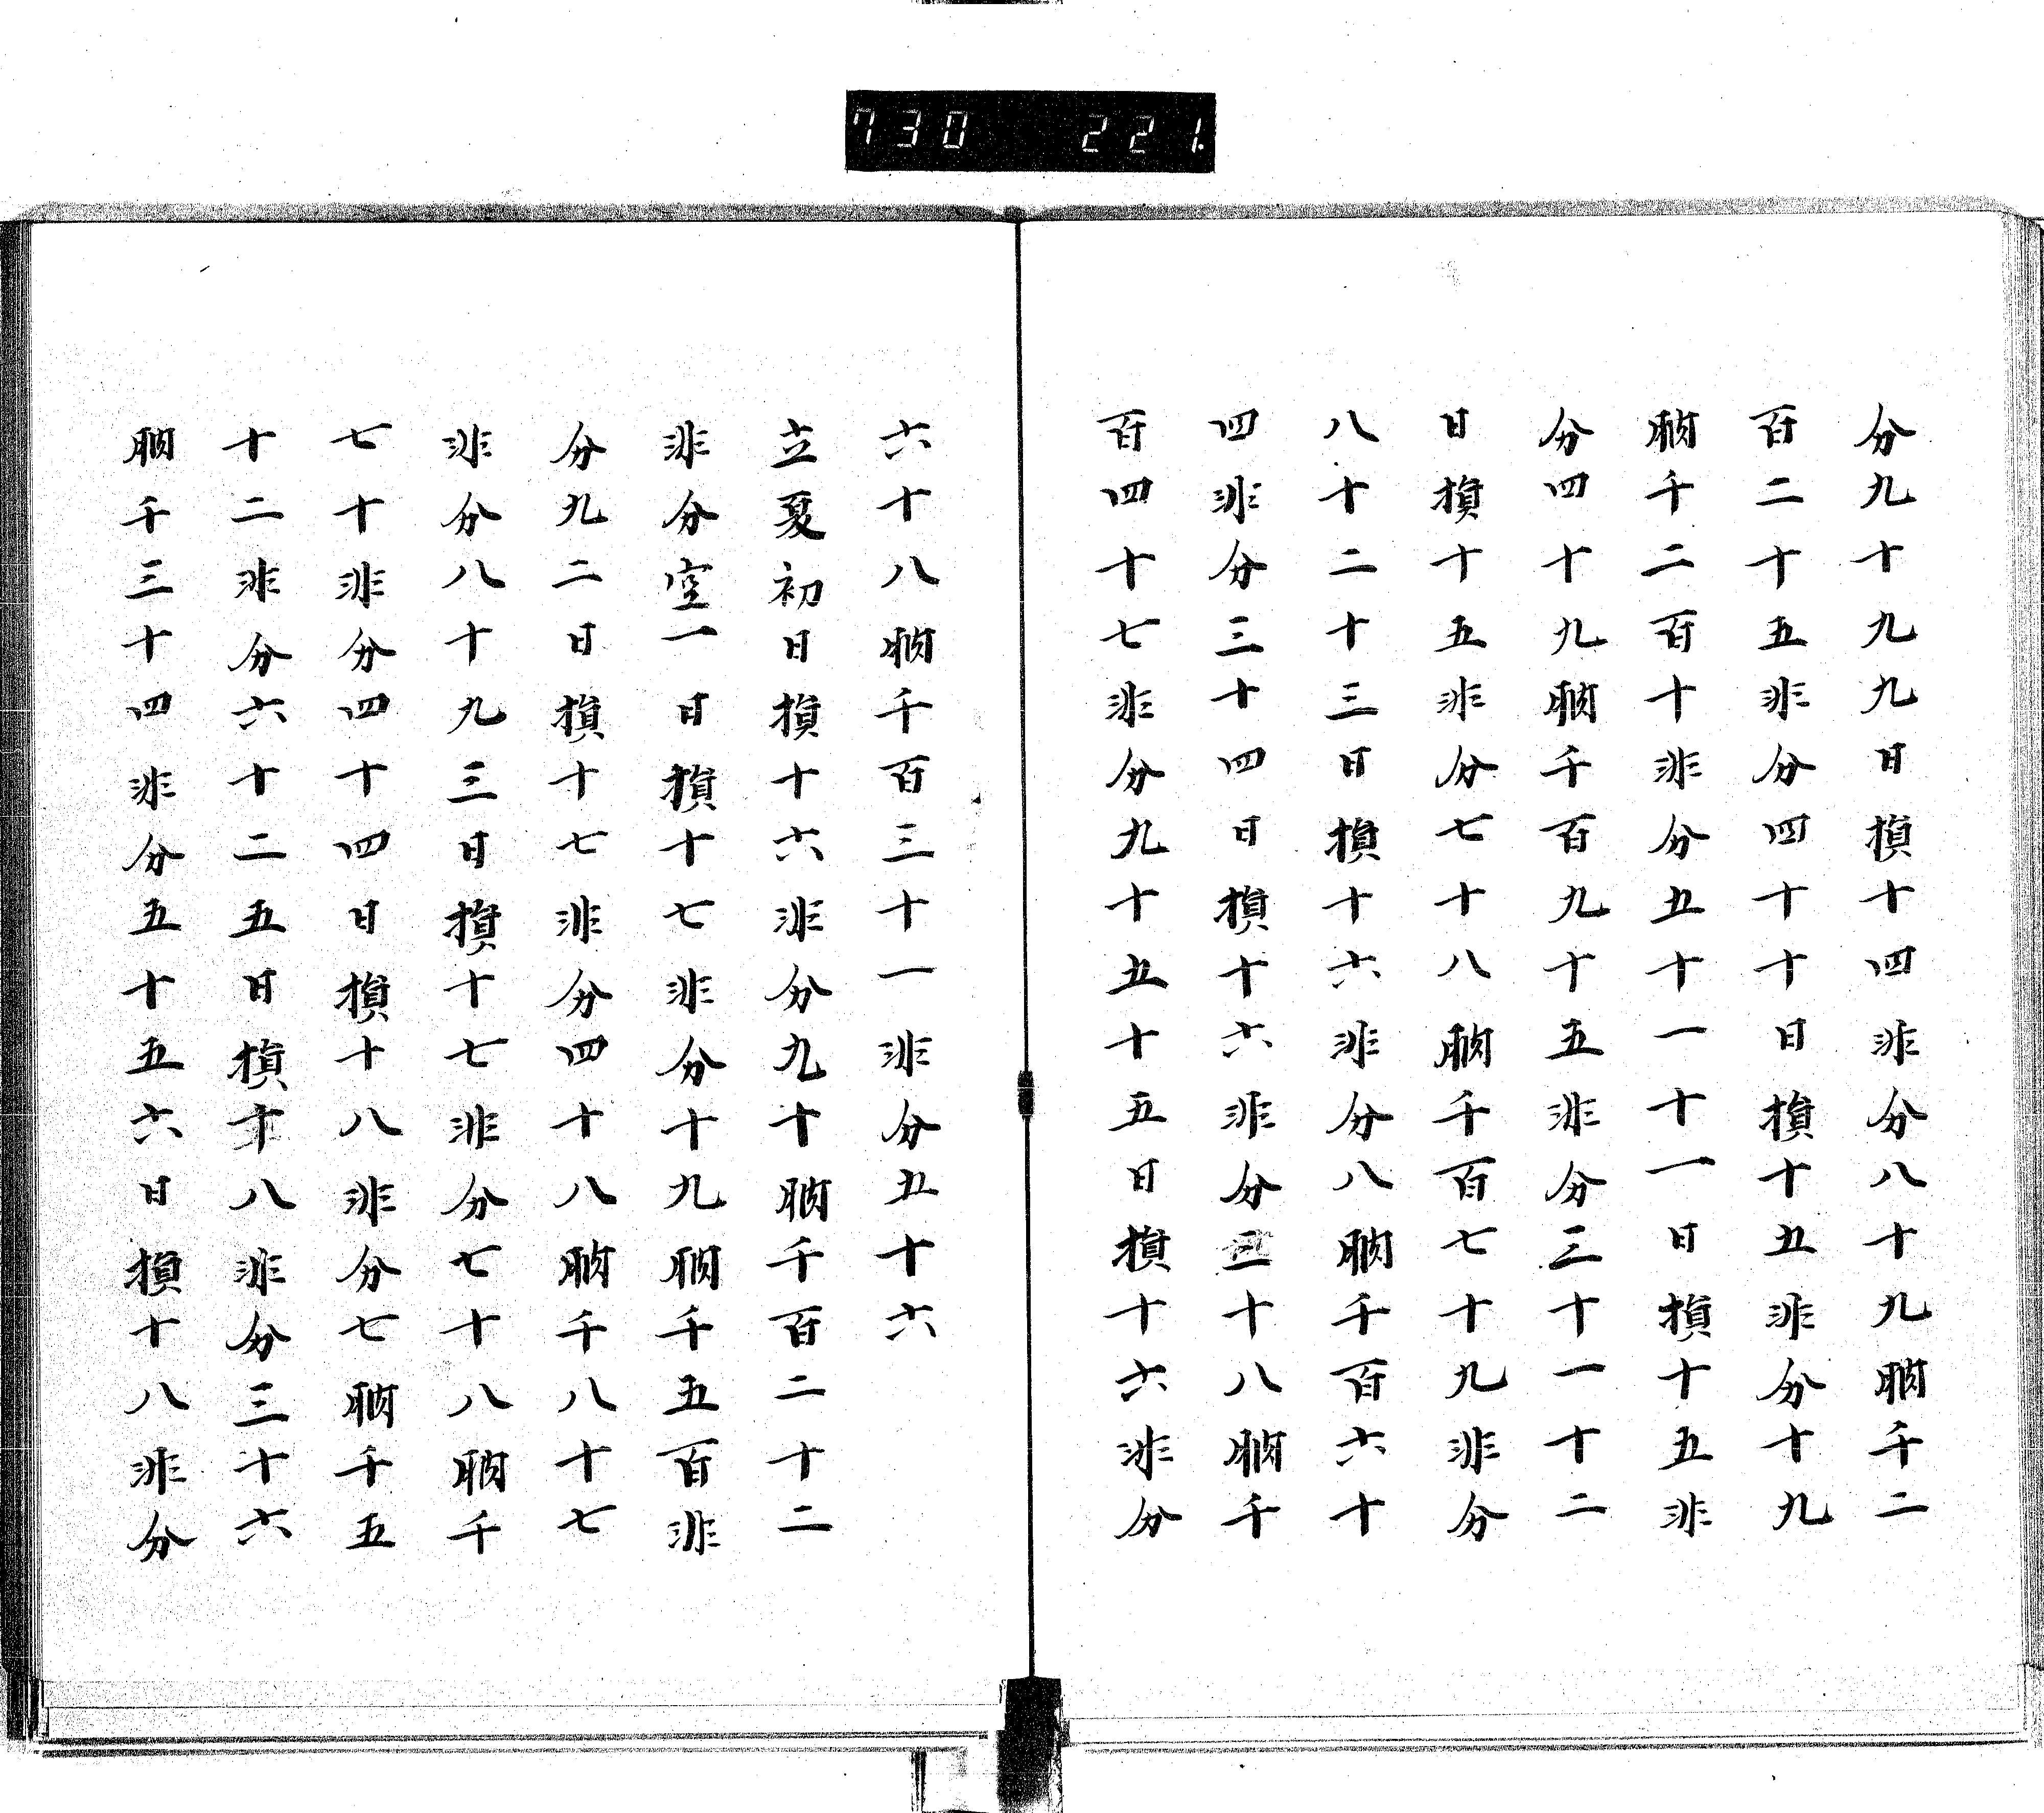 730 221.
分九十九九日損十四非分八十九朒千二
百二十五非分四十十日損十五非分十九
朒千二百十非分五十一十一日損十五非
分四十九朒千百九十五非分三十一十二
日損十五非分七十八朒千百七十九非分
八十二十三日損十六非分八朒千百六十
四非分三十四日損十六非分三十八朒千
百四十七非分九十五十五日損十六非分
六十八朒千百三十一非分五十六
立夏初日損十六非分九十朒千百二十二
非分空一日損十七非分十九朒千五百非
分九二日損十七非分四十八朒千八十七
非分八十九三日損十七非分七十八朒千
七十非分四十四日損十八非分七朒千五
十二非分六十二五日損十八非分三十六
朒千三十四非分五十五六日損十八非分